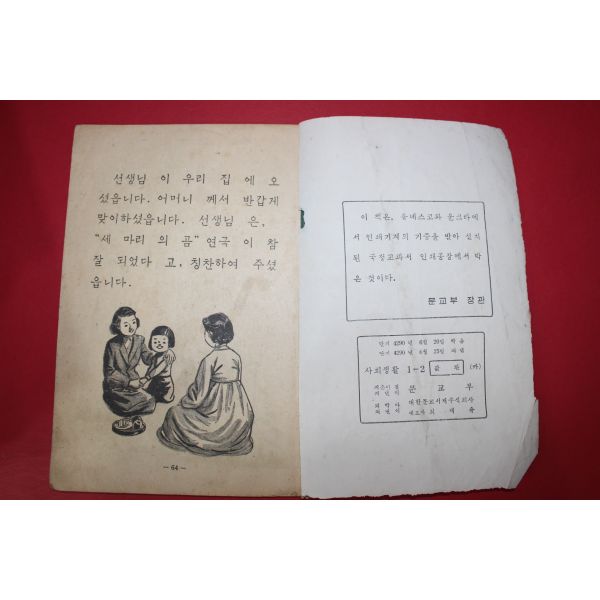 선생님 이 우리 집 에 오
셨읍니다. 어머니 께서 반갑게
맞이하셨읍니다. 선생님 은,
“세 마리 의 곰” 연극 이 참
잘 되었다 고, 칭찬하여 주셨
읍니다.
— 64 —
이 책은, 유네스코와 운크라에
서 인쇄기계의 기증을 받아 설치
된 국정교과서 인쇄공장에서 박
은 것이다.
문교부 장관
단기 4290 년 6월 20일 박음
단기 4290 년 6월 25일 펴냄
사회생활 1-2
문 교 부